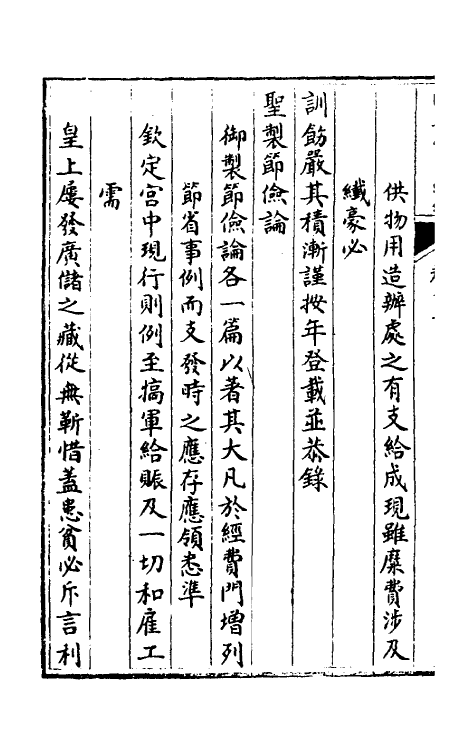 供物用造辦處之有支給成現雖糜費涉及
纎豪必
訓飭嚴其積漸謹按年登載並恭錄
聖製節儉論
御製節儉論各一篇以著其大凡於經費門增列
節省事例而支發時之應存應領悉準
欽定宫中現行則例至犒軍給賑及一切和雇工
需
皇上屢發廣儲之藏從無靳惜葢患貧必斥言利